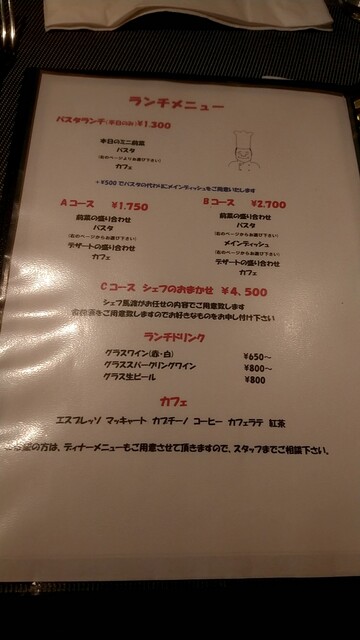 ランチメニュー
パスタランチ(平日のみ)¥1.300
本日のミニ前菜
パスタ
(右のページよりお選び下さい)
カフェ
+¥500でパスタの代わりにメインディッシュをご用意いたします
Aコース ¥1.750
前菜の盛り合わせ
パスタ
(右のページからお選び下さい)
デザートの盛り合わせ
カフェ
Bコース ¥2.700
前菜の盛り合わせ
パスタ
(右のページからお選び下さい)
メインディッシュ
(右のページからお選び下さい)
デザートの盛り合わせ
カフェ
Cコース シェフのおまかせ ¥4,500
シェフ馬渡がお任せの内容でご用意致します
を数種ご用意致しますのでお好きなものをお申し付け下さい
ランチドリンク
グラスワイン(赤・白) ¥650~
グラススパークリングワイン ¥800~
グラス生ビール ¥800
カフェ
エスプレッソ マッキャート カプチーノ コーヒー カフェラテ 紅茶
の方は、ディナーメニューもご用意させて頂きますので、スタッフまでご相談下さい。